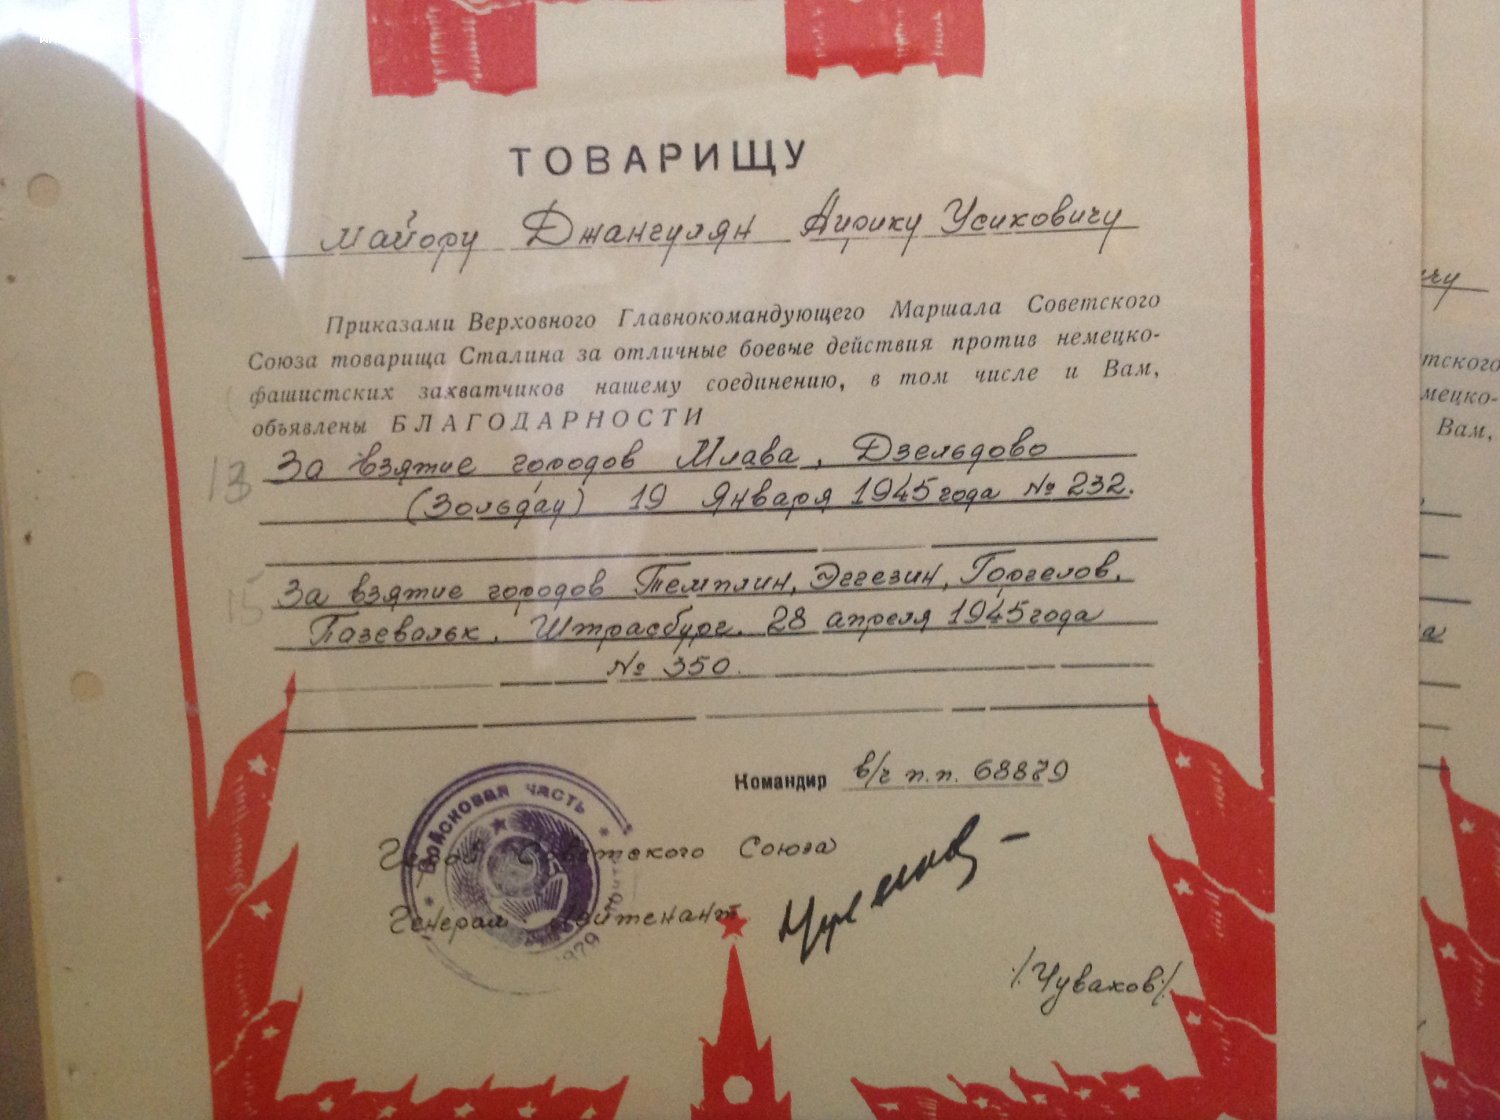 ТОВАРИЩУ
Майору Джангулян Айрику Усиковичу
Приказами Верховного Главнокомандующего Маршала Советского
Союза товарища Сталина за отличные боевые действия против немецко-
фашистских захватчиков нашему соединению, в том числе и Вам,
объявлены БЛАГОДАРНОСТИ
13 За взятие городов Млава, Дзельдово
(Зольдау) 19 Января 1945 года № 232.
15 За взятие городов Темплин, Эггезин, Горгелов,
Пазевальк, Штрасбург. 28 апреля 1945 года
№ 350.
Командир в/ч п.п. 68879
ВОЙСКОВАЯ ЧАСТЬ
Герой Советского Союза
Генерал Лейтенант
/Чувахов/
чу
тского
мецко-
Вам,